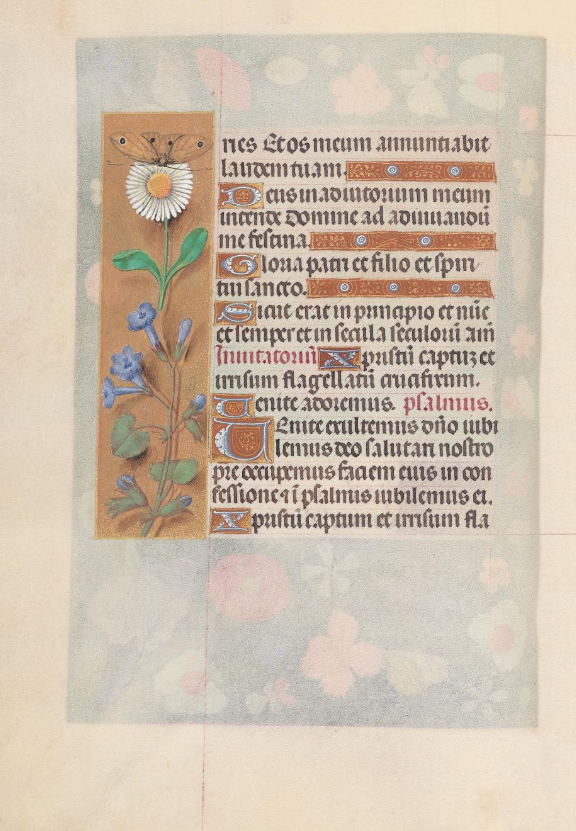 ries Et os meum annuntiabit
laudem tuam.
Deus in adiutorium meum
intende Domine ad adiuuandū
me festina.
Gloria patri et filio et spiri
tui sancto.
Sicut erat in principio et nūc
et semper et in secula seculorū am̄
Inuitatoriū Xpristū captuz et
irrisum flagellatū crucifixum.
Uenite adoremus. psalmus.
UEnite exultemus dño iubi
lemus deo salutari nostro
pre occupemus faciem eius in con
fessione ⁊ ī psalmus iubilemus ei.
Xpristū captum et irrisum fla